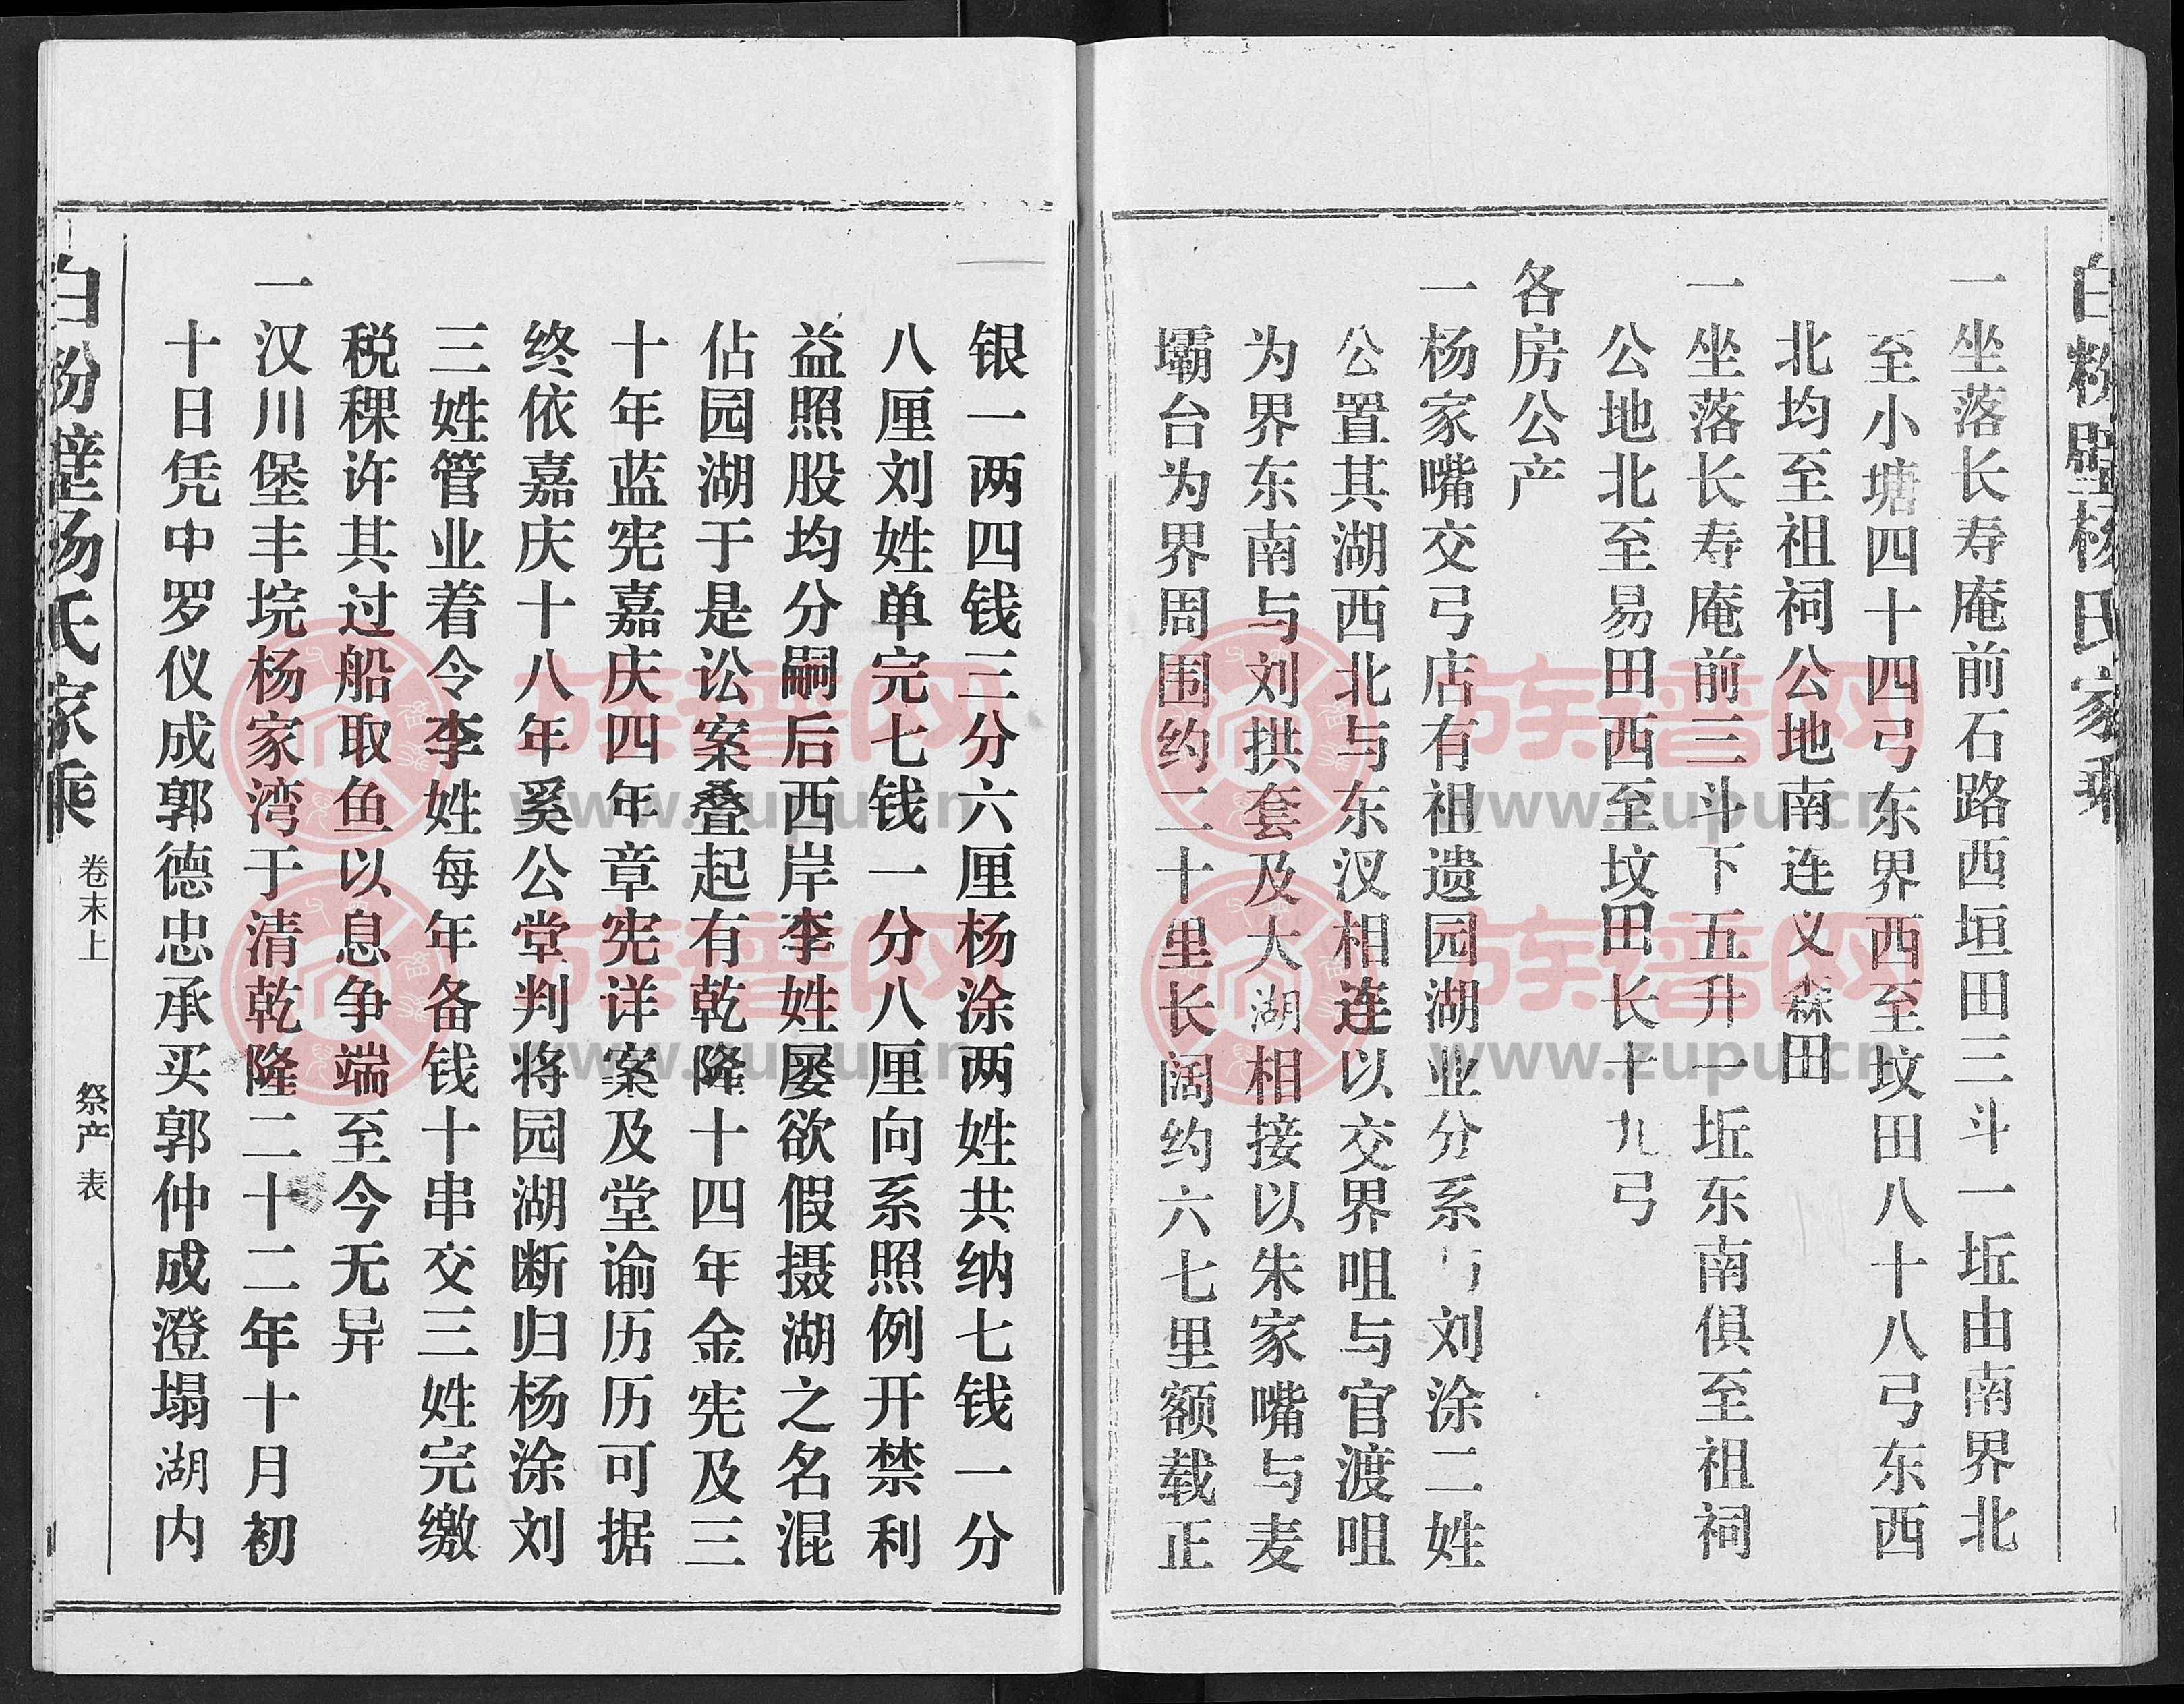 白粉壁杨氏家乘
一坐落长寿庵前石路西垣田三斗一坵由南界北
至小塘四十四弓东界西至坟田八十八弓东西
北均至祖祠公地南连义森田
一坐落长寿庵前三斗下五升一坵东南俱至祖祠
公地北至易田西至坟田长十九弓
各房公产
一杨家嘴交弓店有祖遗园湖业分系与刘涂二姓
公置其湖西北与东汊相连以交界咀与官渡咀
为界东南与刘拱套及大湖相接以朱家嘴与麦
壩台为界周围约二十里长阔约六七里额载正
银一两四钱三分六厘杨涂两姓共纳七钱一分
八厘刘姓单完七钱一分八厘向系照例开禁利
益照股均分嗣后西岸李姓屡欲假摄湖之名混
佔园湖于是讼案叠起有乾隆十四年金宪及三
十年蓝宪嘉庆四年章宪详案及堂谕历历可据
终依嘉庆十八年奚公堂判将园湖断归杨涂刘
三姓管业着令李姓每年备钱十串交三姓完缴
税稞许其过船取鱼以息争端至今无异
一汉川堡丰垸杨家湾于清乾隆二十二年十月初
十日凭中罗仪成郭德忠承买郭仲成澄塌湖内
白粉壁杨氏家乘
卷末上
祭产表
族谱网
www.zupu.cn
族谱网
www.zupu.cn
族谱网
www.zupu.cn
族谱网
www.zupu.cn